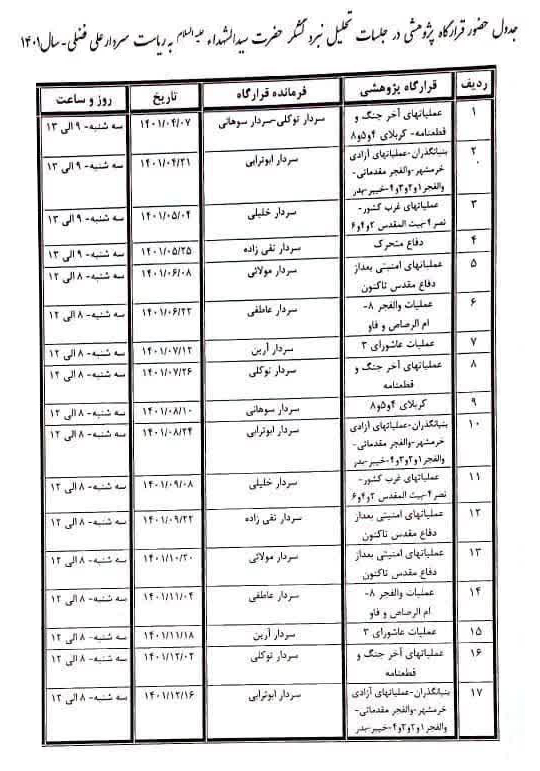 جدول حضور قرارگاه پژوهشی در جلسات تحلیل نبرد لشگر حضرت سیدالشهداء علیه السلام به ریاست سردار علی فضلی - سال ۱۴۰۱
ردیف قرارگاه پژوهشی فرمانده قرارگاه تاریخ روز و ساعت
۱ عملیاتهای آخر جنگ و سردار توکلی-سردار سوهانی ۱۴۰۱/۰۴/۰۷ سه شنبه- ۹ الی ۱۳
قطعنامه- کربلای ۴و۵و۸
۲ بنیانگذران-عملیاتهای آزادی سردار ابوترابی ۱۴۰۱/۰۴/۲۱ سه شنبه- ۹ الی ۱۳
خرمشهر-والفجر مقدماتی-
والفجر۱و۲و۳و۴-خیبر-بدر
۳ عملیاتهای غرب کشور- سردار خلیلی ۱۴۰۱/۰۵/۰۴ سه شنبه- ۹ الی ۱۳
نصر۴-بیت المقدس ۲و۴و۶
۴ دفاع متحرک سردار تقی زاده ۱۴۰۱/۰۵/۲۵ سه شنبه- ۹ الی ۱۳
۵ عملیاتهای امنیتی بعداز سردار مولائی ۱۴۰۱/۰۶/۰۸ سه شنبه- ۸ الی ۱۲
دفاع مقدس تاکنون
۶ عملیات والفجر ۸- سردار عاطفی ۱۴۰۱/۰۶/۲۲ سه شنبه- ۸ الی ۱۲
ام الرصاص و فاو
۷ عملیات عاشورای ۳ سردار آرین ۱۴۰۱/۰۷/۱۲ سه شنبه- ۸ الی ۱۲
۸ عملیاتهای آخر جنگ و سردار توکلی ۱۴۰۱/۰۷/۲۶ سه شنبه- ۸ الی ۱۲
قطعنامه
۹ کربلای ۴و۵و۸ سردار سوهانی ۱۴۰۱/۰۸/۱۰ سه شنبه- ۸ الی ۱۲
۱۰ بنیانگذران-عملیاتهای آزادی سردار ابوترابی ۱۴۰۱/۰۸/۲۴ سه شنبه- ۸ الی ۱۲
خرمشهر-والفجر مقدماتی-
والفجر۱و۲و۳و۴-خیبر-بدر
۱۱ عملیاتهای غرب کشور- سردار خلیلی ۱۴۰۱/۰۹/۰۸ سه شنبه- ۸ الی ۱۲
نصر۴-بیت المقدس ۲و۴و۶
۱۲ عملیاتهای امنیتی بعداز سردار تقی زاده ۱۴۰۱/۰۹/۲۲ سه شنبه- ۸ الی ۱۲
دفاع مقدس تاکنون
۱۳ عملیاتهای امنیتی بعداز سردار مولائی ۱۴۰۱/۱۰/۲۰ سه شنبه- ۸ الی ۱۲
دفاع مقدس تاکنون
۱۴ عملیات والفجر ۸- سردار عاطفی ۱۴۰۱/۱۱/۰۴ سه شنبه- ۸ الی ۱۲
ام الرصاص و فاو
۱۵ عملیات عاشورای ۳ سردار آرین ۱۴۰۱/۱۱/۱۸ سه شنبه- ۸ الی ۱۲
۱۶ عملیاتهای آخر جنگ و سردار توکلی ۱۴۰۱/۱۲/۰۲ سه شنبه- ۸ الی ۱۲
قطعنامه
۱۷ بنیانگذران-عملیاتهای آزادی سردار ابوترابی ۱۴۰۱/۱۲/۱۶ سه شنبه- ۸ الی ۱۲
خرمشهر-والفجر مقدماتی-
والفجر۱و۲و۳و۴-خیبر-بدر